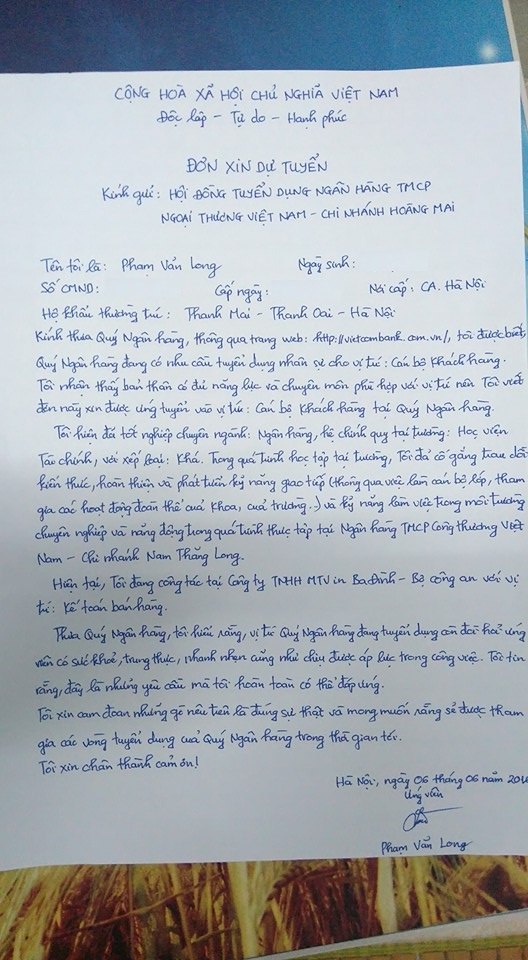 CỘNG HOÀ XÃ HỘI CHỦ NGHĨA VIỆT NAM
Độc lập - Tự do - Hạnh phúc
ĐƠN XIN DỰ TUYỂN
Kính gửi: HỘI ĐỒNG TUYỂN DỤNG NGÂN HÀNG TMCP
NGOẠI THƯƠNG VIỆT NAM - CHI NHÁNH HOÀNG MAI
Tên tôi là: Phạm Văn Long Ngày sinh:
Số CMND: Cấp ngày: Nơi cấp: CA. Hà Nội
Hộ khẩu thường trú: Thanh Mai - Thanh Oai - Hà Nội
Kính thưa Quý Ngân hàng, thông qua trang web: http://vietcombank.com.vn/, tôi được biết,
Quý Ngân hàng đang có nhu cầu tuyển dụng nhân sự cho vị trí: Cán bộ Khách hàng.
Tôi nhận thấy bản thân có đủ năng lực và chuyên môn phù hợp với vị trí nên Tôi viết
đơn này xin được ứng tuyển vào vị trí: Cán bộ Khách hàng tại Quý Ngân hàng.
Tôi hiện đã tốt nghiệp chuyên ngành: Ngân hàng, hệ chính quy tại trường: Học viện
Tài chính, với xếp loại: Khá. Trong quá trình học tập tại trường, Tôi đã cố gắng trau dồi
kiến thức, hoàn thiện và phát triển kỹ năng giao tiếp (thông qua việc làm cán bộ lớp, tham
gia các hoạt động đoàn thể của Khoa, của trường..) và kỹ năng làm việc trong môi trường
chuyên nghiệp và năng động trong quá trình thực tập tại Ngân hàng TMCP Công thương Việt
Nam - Chi nhánh Nam Thăng Long.
Hiện tại, Tôi đang công tác tại Công ty TNHH MTV in Ba Đình - Bộ công an với vị
trí: Kế toán bán hàng.
Thưa Quý Ngân hàng, tôi hiểu rằng, vị trí Quý Ngân hàng đang tuyển dụng còn đòi hỏi ứng
viên có sức khoẻ, trung thực, nhanh nhẹn cũng như chịu được áp lực trong công việc. Tôi tin
rằng, đây là những yêu cầu mà tôi hoàn toàn có thể đáp ứng.
Tôi xin cam đoan những gì nêu trên là đúng sự thật và mong muốn rằng sẽ được tham
gia các vòng tuyển dụng của Quý Ngân hàng trong thời gian tới.
Tôi xin chân thành cảm ơn!
Hà Nội, ngày 06 tháng 06 năm
Ứng viên
Phạm Văn Long